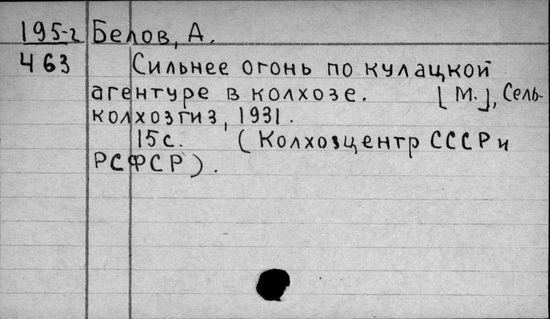 195-2 Белов, А.
463 Сильнее огонь по кулацкой
агентуре в колхозе. [М.], Сель-
колхозгиз, 1931.
15 с. (Колхозцентр СССР и
РСФСР).